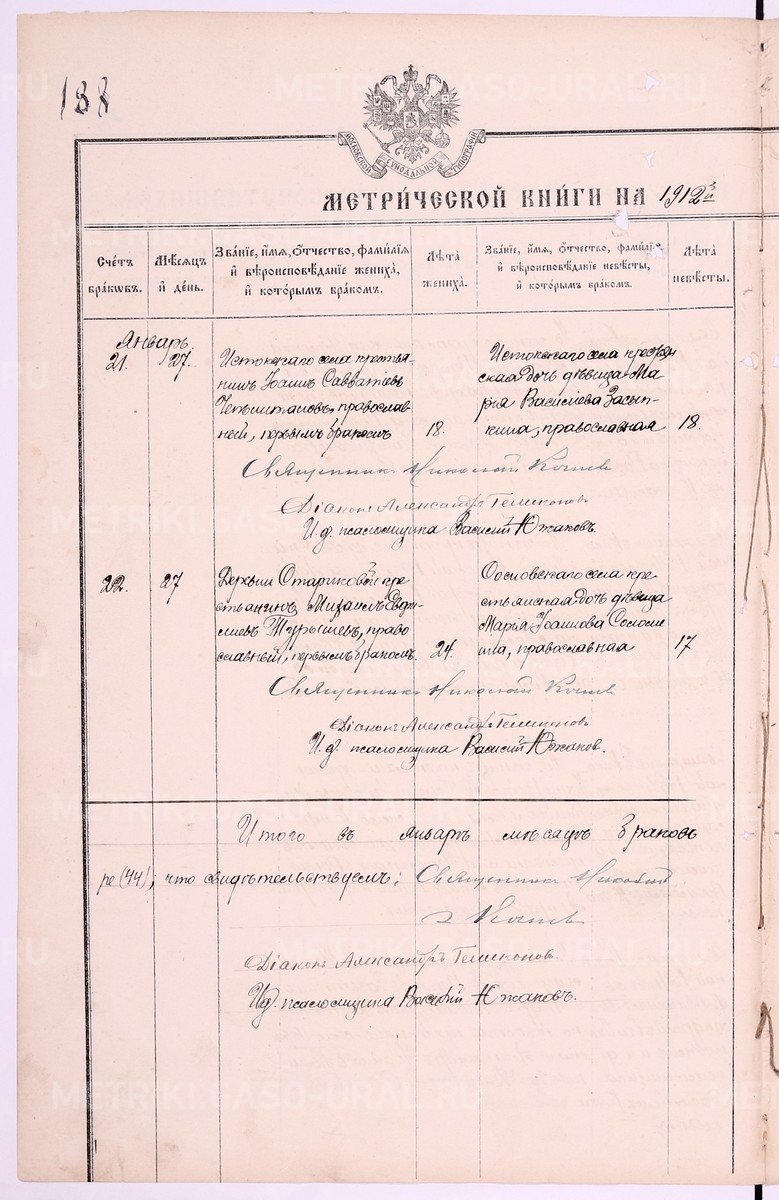 188
МОСКОВСКОЙ СѴНОДАЛЬНОЙ ТИПОГРАФІИ
МЕТРИ́ЧЕСКОЙ КНИ́ГИ НА 1912й
Сче́тъ бра́кωвъ.
Мѣ́сяцъ и҆ де́нь.
Зва́нїе, и҆́мя, ѻ҆́тчество, фами́лїя
и҆ вѣроисповѣ́данїе жениха̀,
и҆ кото́рымъ бра́комъ.
Лѣ́та жениха̀.
Зва́нїе, и҆́мя, ѻ҆́тчество, фами́лїѧ
и҆ вѣроисповѣ́данїе невѣ́сты,
и҆ кото́рымъ бра́комъ.
Лѣ́та невѣ́сты.
Январь.
21. 27. Истокскаго села крестья-
нинъ Іоаннъ Савватіевъ
православ-
ный, первымъ бракомъ 18.
Истокскаго села крестьян
ская дочь дѣвица Ма-
рья Васильева Засып-
кина, православная 18.
Священникъ Николай
Діаконъ Александръ
И.д. псаломщика Василій Южаковъ.
22. 27 Деревни Стариковой кре-
стьянинъ Михаилъ
Турышевъ, право-
славный, первымъ бракомъ. 24.
Сосновскаго села кре-
стьянская дочь дѣвица
Марія Іоаннова Соломе-
ина, православная 17
Священникъ Николай
Діаконъ Александръ
И.д. псаломщика Василій Южаковъ.
Итого въ январѣ мѣсяцѣ браковъ
(44), что свидѣтельствуемъ: Священникъ Николай
Діаконъ Александръ
И.д. псаломщика Василій Южаковъ.
METRIKI.GASO-URAL.RU